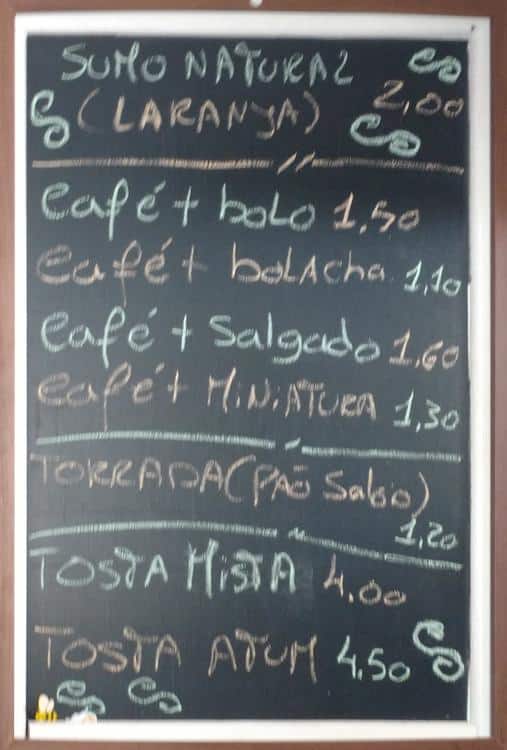 SUMO NATURAL
(LARANYA) 2,00
Café + bolo 1,50
Café + bolacha 1,10
Café + Salgado 1,60
Café + MiNiATURA 1,30
TORRADA (PÃO Saloio)
1,20
TOSTA MiSTA 4,00
TOSTA ATUM 4,50